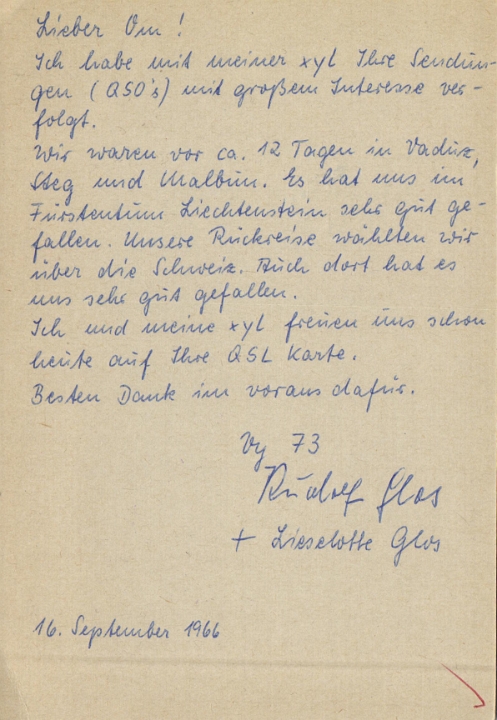 Lieber Om!
Ich habe mit meiner xyl Ihre Sendun-
gen (QSO's) mit großem Interesse ver-
folgt.
Wir waren vor ca. 12 Tagen in Vaduz,
Steg und Malbun. Es hat uns im
Fürstentum Liechtenstein sehr gut ge-
fallen. Unsere Rückreise wählten wir
über die Schweiz. Auch dort hat es
uns sehr gut gefallen.
Ich und meine xyl freuen uns schon
heute auf Ihre QSL Karte.
Besten Dank im voraus dafür.
Vy 73
Rudolf Glos
+ Lieselotte Glos
16. September 1966